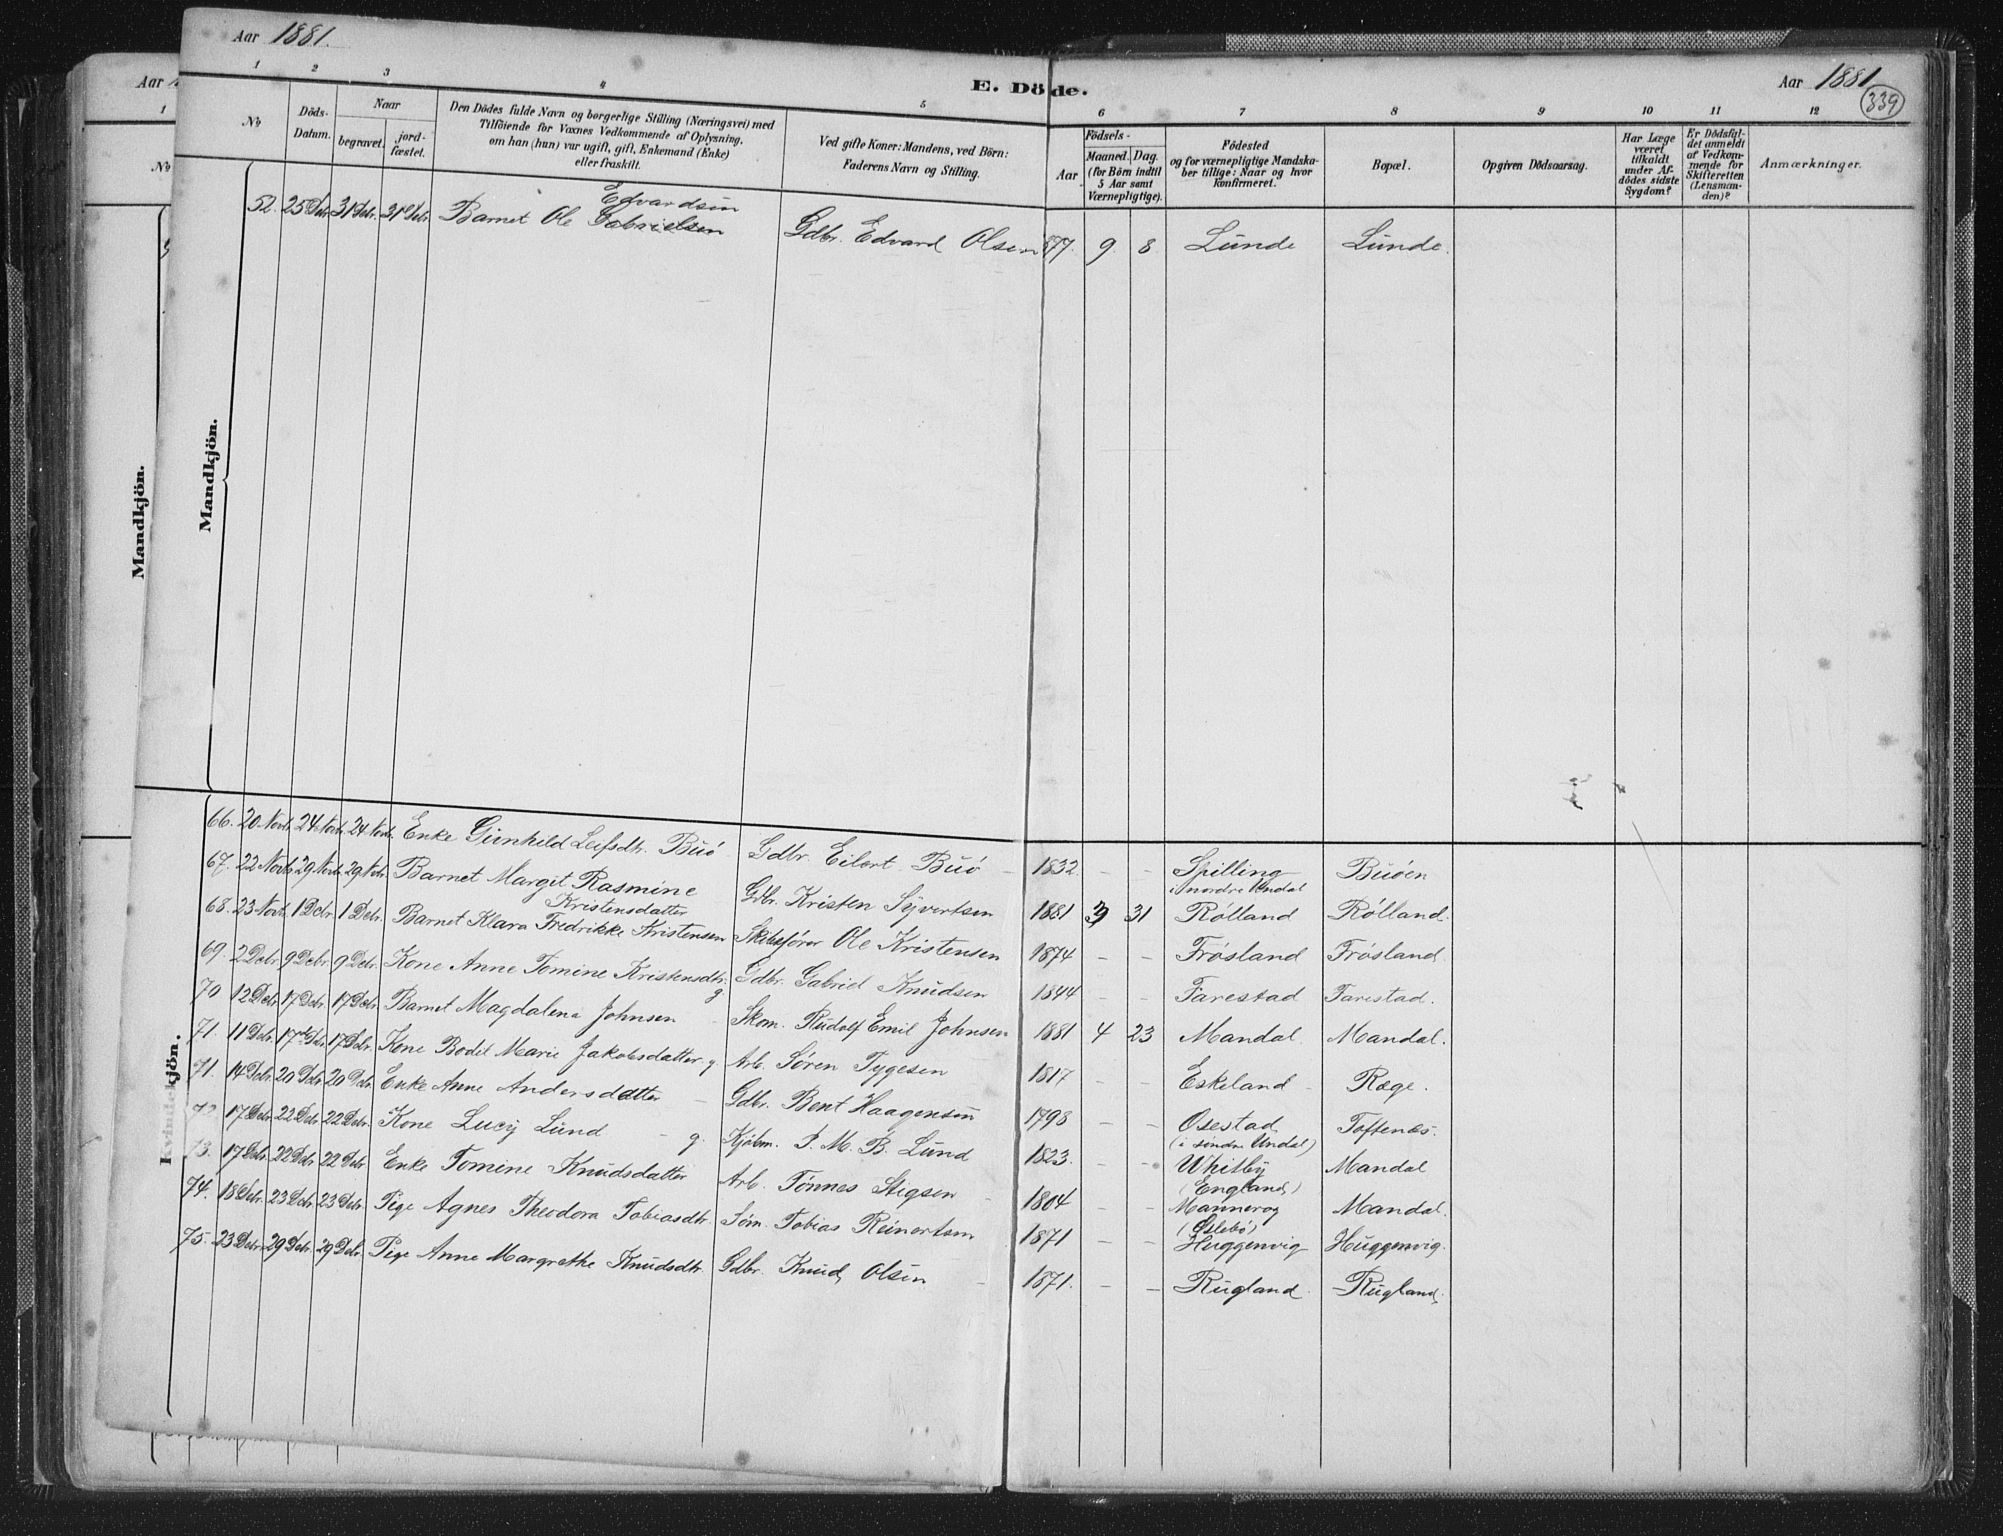 Aar 1881.
E. Döde.
Aar 1881
339
Aar
1 2 3 4 5 6 7 8 9 10 11 12
1
No
No
Döds-Datum.
Naar
begravet.
jord-fæstet.
Den Dödes fulde Navn og borgerlige Stilling (Næringsvei) med
Tilföiende for Voxnes Vedkommende af Oplysning,
om han (hun) var ugift, gift, Enkemand (Enke)
eller fraskilt.
Ved gifte Koner: Mandens, ved Börn:
Faderens Navn og Stilling.
Födsels-
Aar
Maaned. Dag.
(for Börn indtil
5 Aar samt
Værnepligtige).
Födested
og for værnepligtige Mandska-
ber tillige: Naar og hvor
konfirmeret.
Bopæl.
Opgiven Dödsaarsag.
Har Læge
været
tilkaldt
under Af-
dödes sidste
Sygdom?
Er Dödsfal-
det anmeldt
af Vedkom-
mende for
Skifteretten
(Lensman-
den)?
Anmærkninger.
Mandkjön.
Mandkjön.
Edvardsen
52. 25 Debr. 31 Debr. 31 Debr. Barnet Ole Gabrielsen Gdbr. Edvard Olsen 1877. 9. 8 Lunde Lunde.
Kvindekjön.
66. 20 Novb. 24 Novb. 24 Novb. Enke Gunhild Leifsdtr. Buö Gdbr. Eilert Buö 1832 – – Spilling Buöen
i nordre Undal
67. 22 Novb. 29 Novb. 29 Nvbr. Barnet Margit Rasmine Gdbr. Kristen Syvertsen 1881 3 31 Rölland Rölland.
Kristensdatter
68. 23 Novb. 1 Debr. 1 Debr. Barnet Klara Fredrikke Kristensen Skibsförer Ole Kristensen 1874 – – Frösland Frösland.
69. 2 Debr. 9 Debr. 9 Debr. Kone Anne Tomine Kristensdtr. g Gdbr. Gabriel Knudsen 1844 – – Farestad Farestad.
70 12 Debr. 17 Debr. 17 Debr. Barnet Magdalena Johnsen Skom. Rudolf Emil Johnsen 1881 4 23 Mandal Mandal.
71. 11 Debr. 17 Debr. 17 Debr. Kone Bodil Marie Jakobsdatter g Arb. Sören Tygesen 1817 – – Eskeland Ræge.
71. 14 Debr. 20 Debr. 20 Debr. Enke Anne Andersdatter – Gdbr. Bent Haagensen 1798 – – Osestad Toftenæs.
(i söndre Undal)
72. 17 Debr. 22 Debr. 22 Debr. Kone Lucy Lund – g. Kjöbm. P. M. B. Lund 1823. – – Whitby Mandal
(England)
73. 17 Debr. 22 Debr. 22 Debr. Enke Tomine Knudsdatter Arb. Tönnes Stigsen – 1804 – – Mannerog Mandal.
(Öslebö)
74. 18 Debr. 23 Debr. 23 Debr. Pige Agnes Theodora Tobiasdtr. Söm. Tobias Reinertsen 1871 – – Huggenvig Huggenvig.
75. 23 Debr. 29 Debr. 29 Debr. Pige Anne Margrethe Knudsdtr. Gdbr. Knud Olsen – 1871. – – Rugland. Rugland.